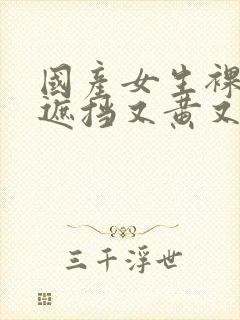 國產女生裸
遮挡又黄又
三千浮世